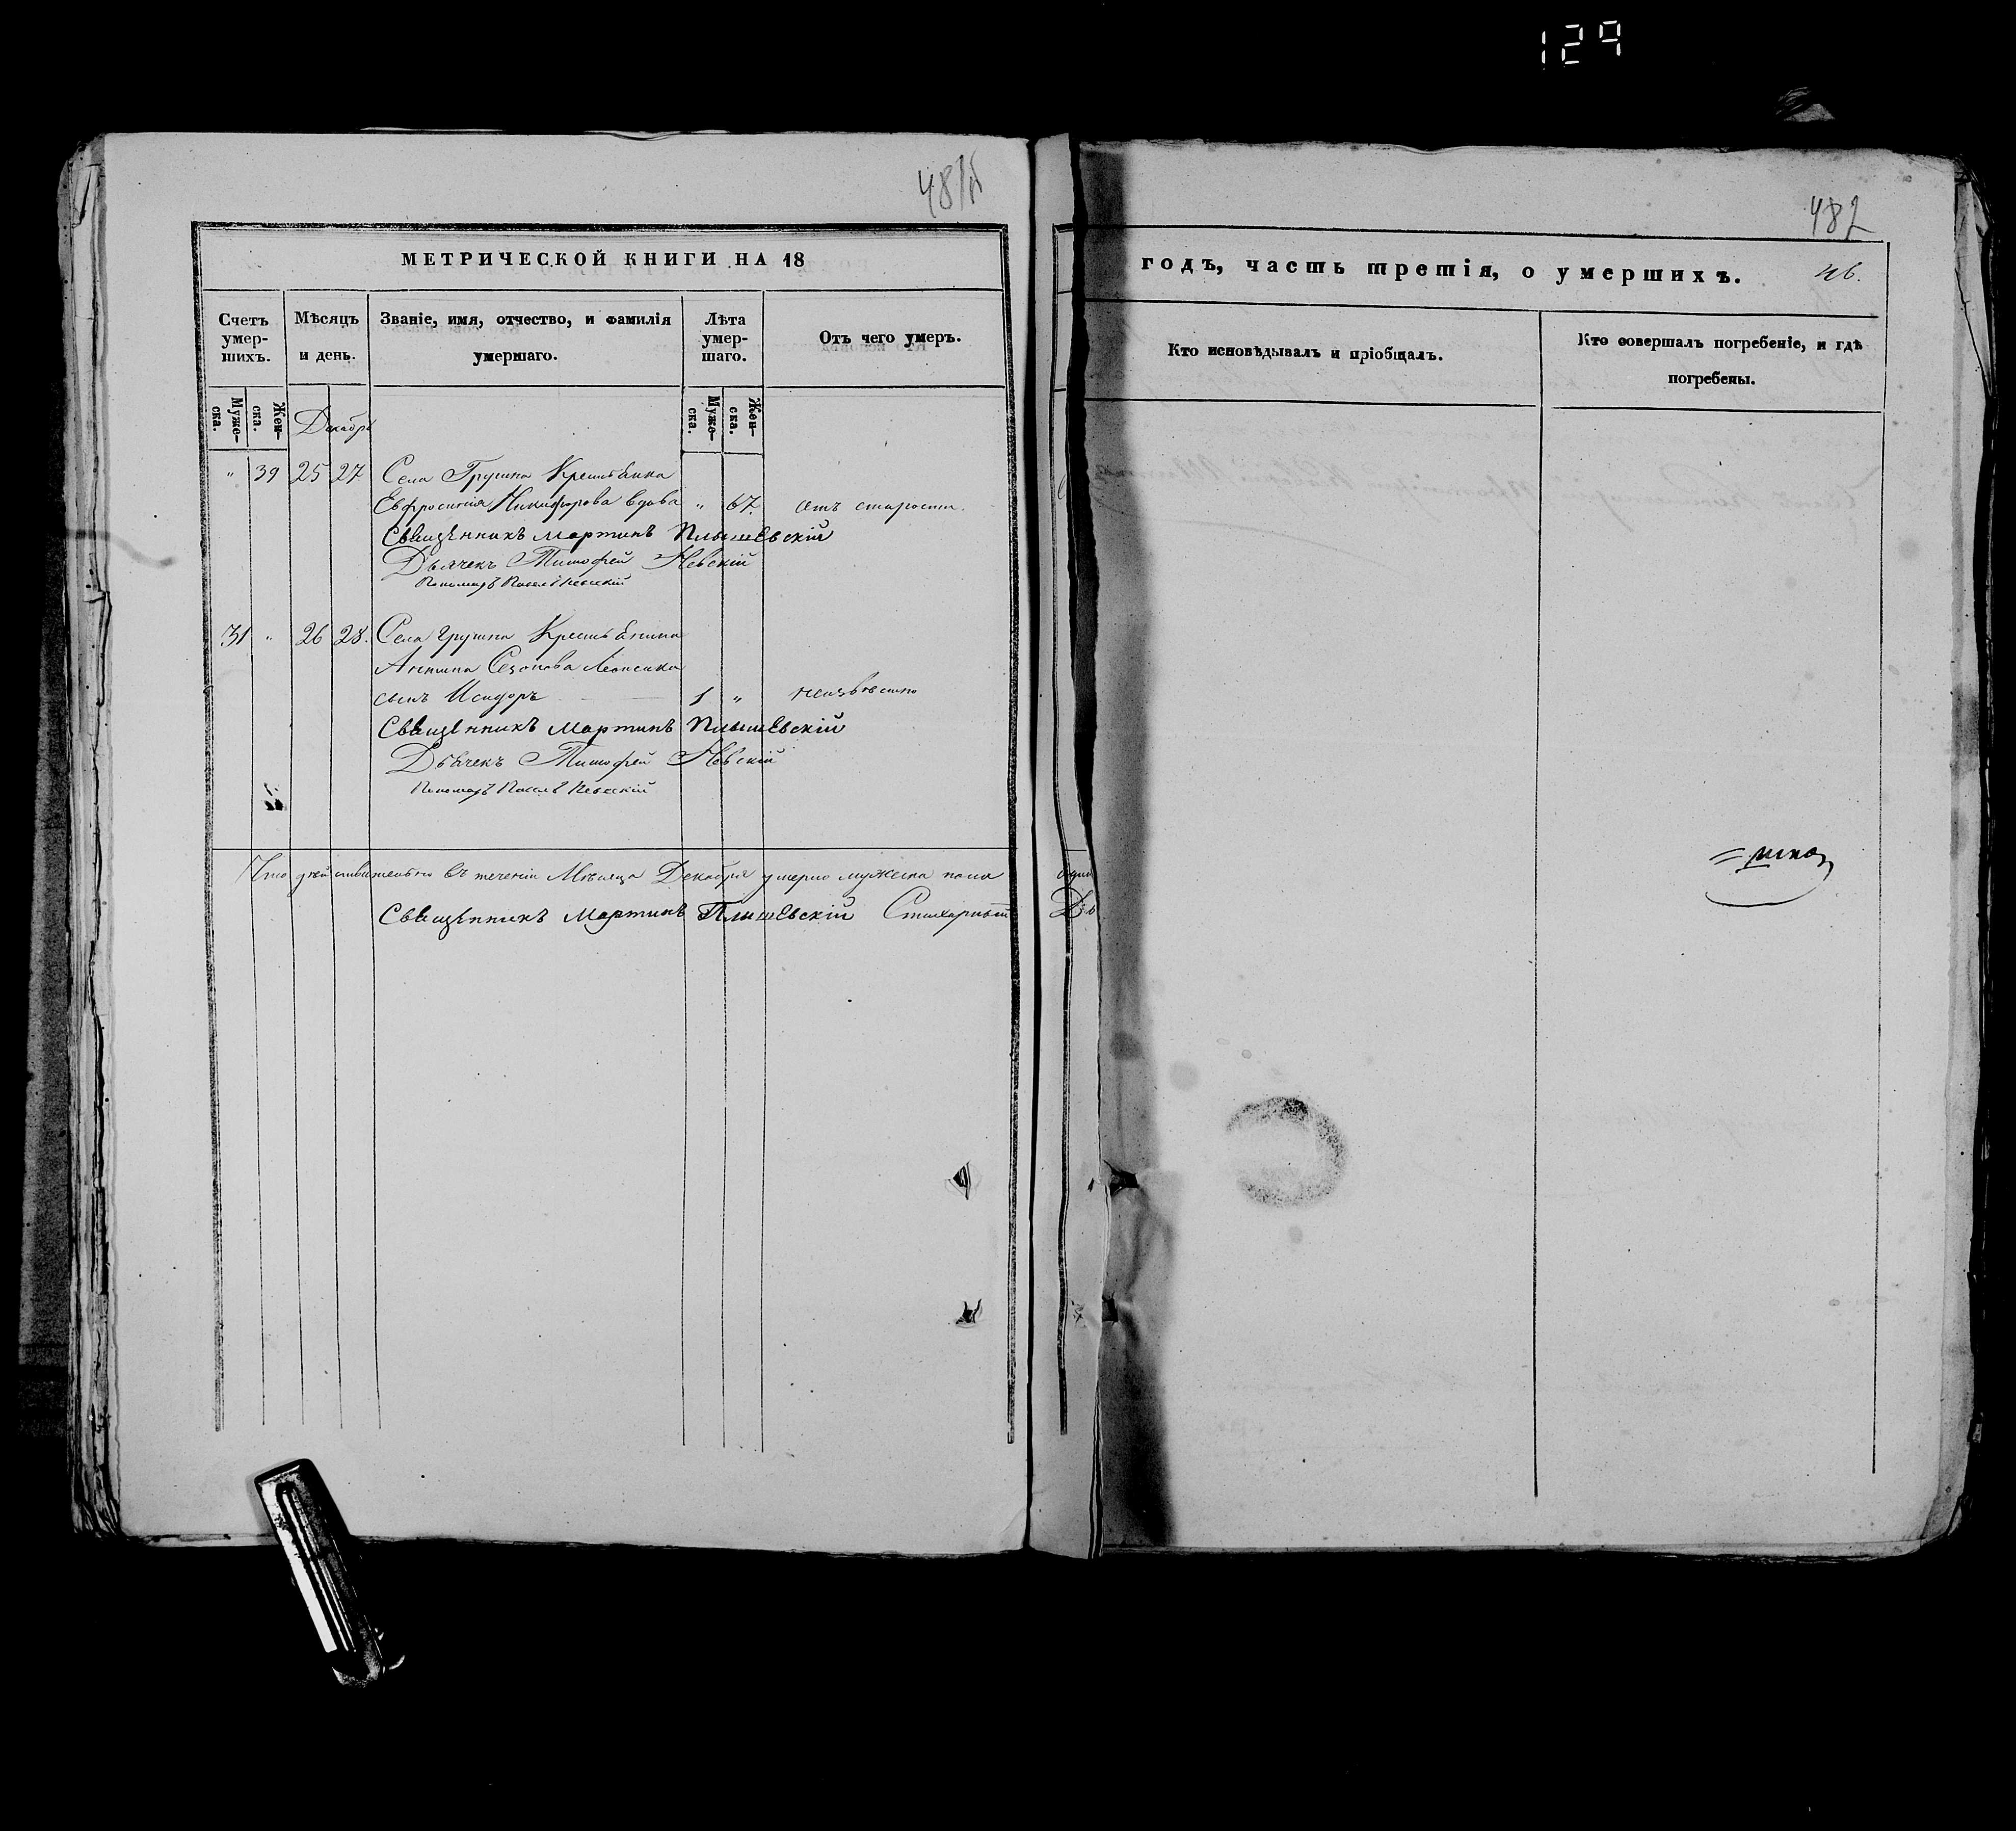 129
481
482
МЕТРИЧЕСКОЙ КНИГИ НА 18
годъ, часть третія, о умершихъ.
46.
Счетъ умер-шихъ.
Мѣсяцъ и день.
Званіе, имя, отчество, и фамилія умершаго.
Лѣта умер-шаго.
Отъ чего умеръ.
Кто исповѣдывалъ и пріобщалъ.
Кто совершалъ погребеніе, и гдѣ погребены.
Муже-ска.
Жен-ска.
Декабрь
Муже-ска.
Жен-ска.
" 39 25 27 Села Грушка Крестьянка
Евфросинія Никифорова вдова " 67. отъ старости.
Священникъ Мартинъ Плышевскій
Дьячекъ Тимофей Невскій
Пономарь Невскій
31 " 26 28. Села Грушки Крестьянина
Антина Сезонова
сынъ Исидоръ 1 " неизвѣстно
Священникъ Мартинъ Плышевскій
Дьячекъ Тимофей Невскій
Пономарь Невскій
Что дѣйствительно въ теченіи Мѣсяца Декабря умерло мужеска пола
Священникъ Мартинъ Плышевскій Стихарный